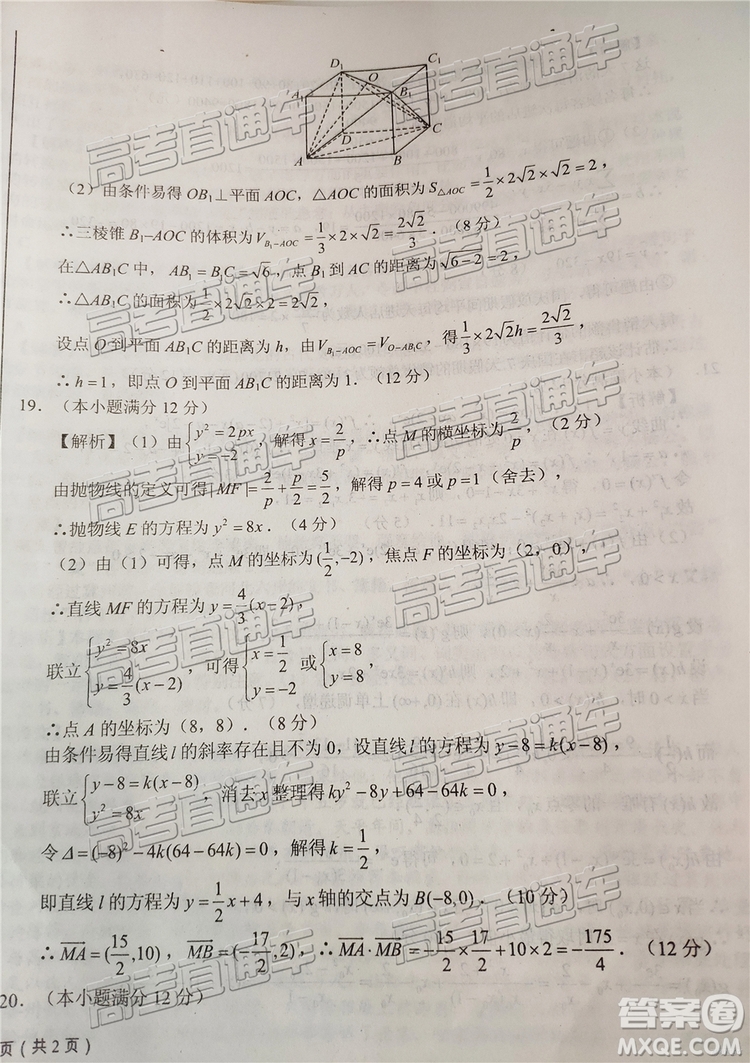 D₁
C₁
O
A₁
B₁
D
C
A
B
(2)由条件易得OB₁⊥平面AOC，△AOC的面积为S△AOC=1/2×2√2×√2=2，
∴三棱锥B₁-AOC的体积为V_{B₁-AOC}=1/3×2×√2=2√2/3．（8分）
在△AB₁C中，AB₁=B₁C=√6，点B₁到AC的距离为√(6-2)=2，
∴△AB₁C的面积为1/2×2√2×2=2√2，
设点O到平面AB₁C的距离为h，由V_{B₁-AOC}=V_{O-AB₁C}，得1/3×2√2h=2√2/3，
∴h=1，即点O到平面AB₁C的距离为1．（12分）
19．（本小题满分12分）
【解析】（1）由{y²=2px，y=-2，解得x=2/p，∴点M的横坐标为2/p，（2分）
由抛物线的定义可得|MF|=2/p+p/2=5/2，解得p=4或p=1（舍去），
∴抛物线E的方程为y²=8x．（4分）
（2）由（1）可得，点M的坐标为(1/2,-2)，焦点F的坐标为（2，0），
∴直线MF的方程为y=4/3(x-2)，
联立{y²=8x，y=4/3(x-2)，可得{x=1/2，y=-2或{x=8，y=8，
∴点A的坐标为（8，8）．（8分）
由条件易得直线l的斜率存在且不为0，设直线l的方程为y-8=k(x-8)，
联立{y-8=k(x-8)，y²=8x，消去x整理得ky²-8y+64-64k=0，
令Δ=(-8)²-4k(64-64k)=0，解得k=1/2，
即直线l的方程为y=1/2x+4，与x轴的交点为B(-8,0)．（10分）
∴MA=(15/2,10)，MB=(-17/2,2)，∴MA·MB=-15/2×17/2+10×2=-175/4．（12分）
20．（本小题满分12分）
页（共2页）
高考直通车
高考直通车
高考直通车
高考直通车
高考直通车
高考直通车
高考直通车
答案圈
MXQE.COM